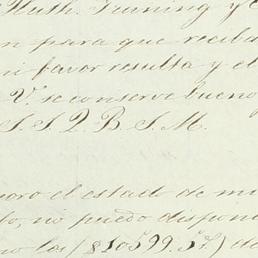 Ruth. Training y C
n para que reciba
mi favor resulta y el
V. se conserve bueno
S. S. Q. B. S. M.
noro el estado de mi
do, no puedo disponer
no los ($10599.57) de